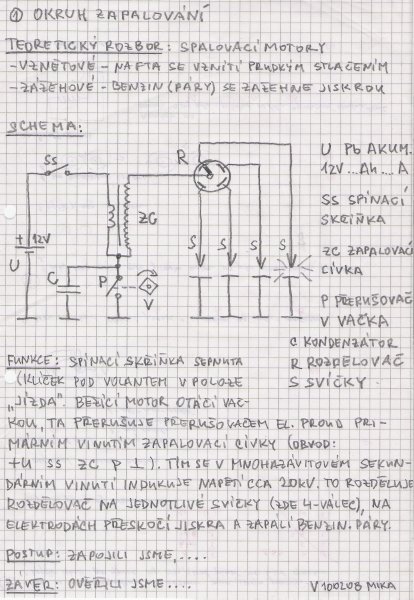 ① OKRUH ZAPALOVÁNÍ
TEORETICKÝ ROZBOR: SPALOVACÍ MOTORY
-VZNĚTOVÉ - NAFTA SE VZNÍTÍ PRUDKÝM STLAČENÍM
-ZÁŽEHOVÉ - BENZIN (PÁRY) SE ZAŽEHNE JISKROU
SCHEMA:
SS
R
ZC
+ 12V
U
C
P
V
S S S S
U Pb AKUM.
12V...Ah...A
SS SPÍNACÍ
SKŘÍŇKA
ZC ZAPALOVACÍ
CÍVKA
P PŘERUŠOVAČ
V VAČKA
C KONDENZÁTOR
R ROZDĚLOVAČ
S SVÍČKY
FUNKCE: SPÍNACÍ SKŘÍŇKA SEPNUTA
(KLÍČEK POD VOLANTEM V POLOZE
„JÍZDA". BĚŽÍCÍ MOTOR OTÁČÍ VAČ-
KOU, TA PŘERUŠUJE PŘERUŠOVAČEM EL. PROUD PRI-
MÁRNÍM VINUTÍM ZAPALOVACÍ CÍVKY (OBVOD:
+U SS ZC P ⊥). TÍM SE V MNOHAZÁVITOVÉM SEKUN-
DÁRNÍM VINUTÍ INDUKUJE NAPĚTÍ CCA 20kV. TO ROZDĚLUJE
ROZDĚLOVAČ NA JEDNOTLIVÉ SVÍČKY (ZDE 4-VÁLEC), NA
ELEKTRODÁCH PŘESKOČÍ JISKRA A ZAPÁLÍ BENZIN. PÁRY.
POSTUP: ZAPOJILI JSME,....
ZÁVĚR: OVĚŘILI JSME....
V100208 MIKA